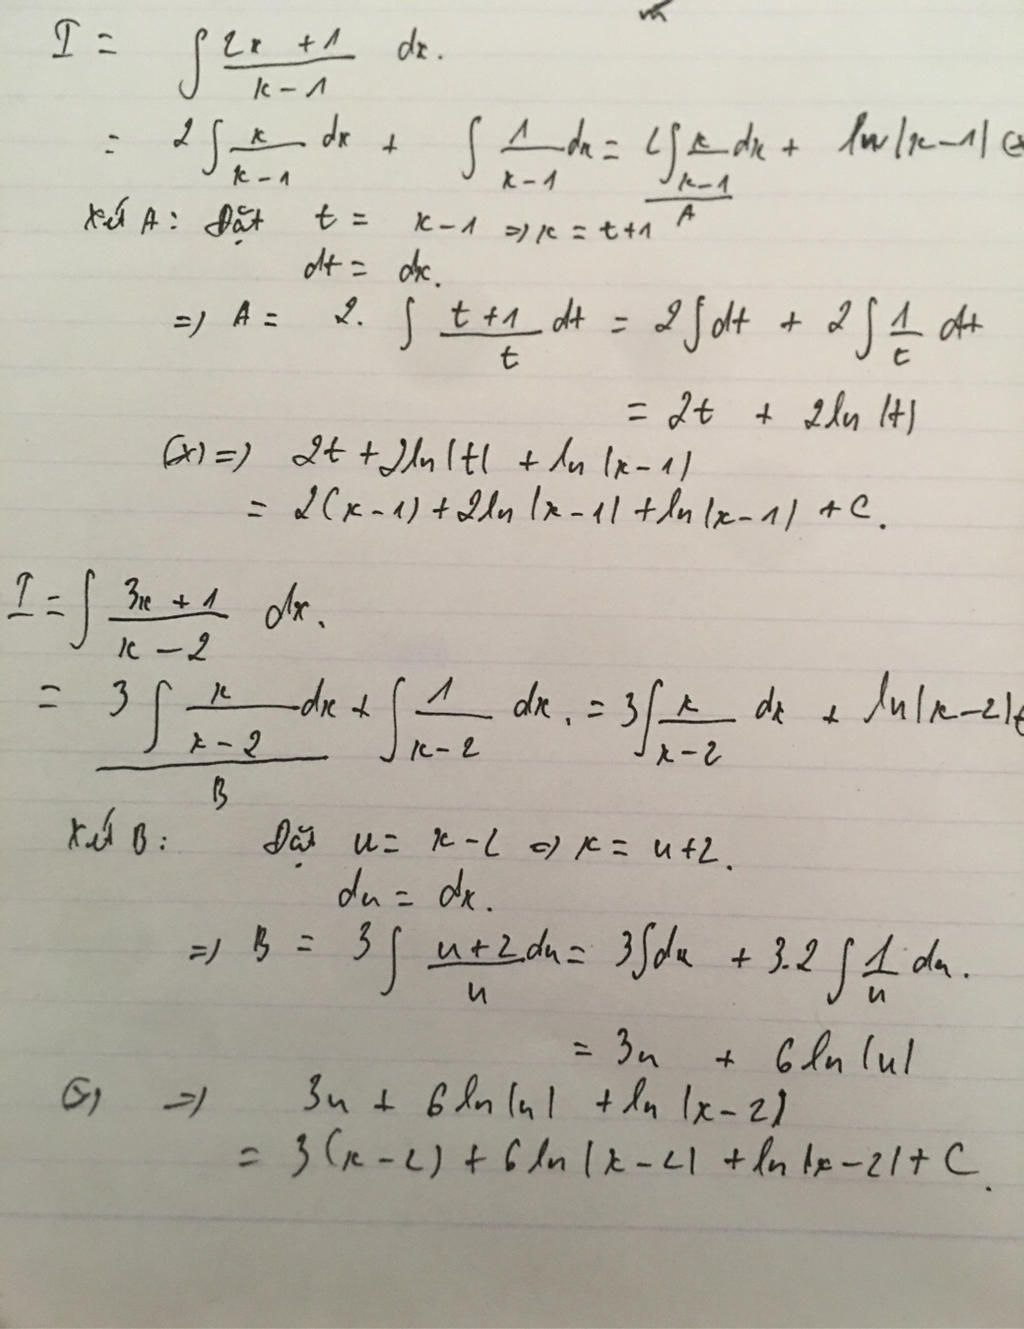 I = ∫ (2x + 1)/(x - 1) dx.
= 2 ∫ x/(x - 1) dx + ∫ 1/(x - 1) dx = 2 ∫ x/(x - 1) dx + ln |x - 1| (*
A
Xét A: Đặt t = x - 1 => x = t + 1
dt = dx.
=> A = 2. ∫ (t + 1)/t dt = 2 ∫ dt + 2 ∫ 1/t dt
= 2t + 2 ln |t|
(*) => 2t + 2 ln |t| + ln |x - 1|
= 2(x - 1) + 2 ln |x - 1| + ln |x - 1| + C.
I = ∫ (3x + 1)/(x - 2) dx.
= 3 ∫ x/(x - 2) dx + ∫ 1/(x - 2) dx. = 3 ∫ x/(x - 2) dx + ln |x - 2| (
B
Xét B: Đặt u = x - 2 => x = u + 2.
du = dx.
=> B = 3 ∫ (u + 2)/u du = 3 ∫ du + 3.2 ∫ 1/u du.
= 3u + 6 ln |u|
(*) => 3u + 6 ln |u| + ln |x - 2|
= 3(x - 2) + 6 ln |x - 2| + ln |x - 2| + C.